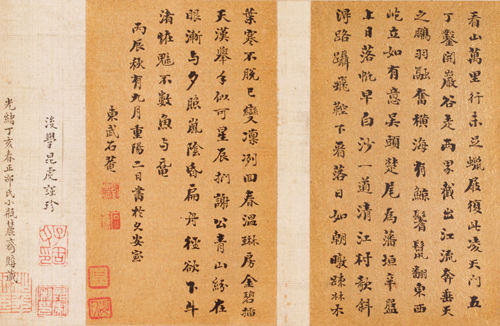 看山萬里行未足蠟屐須此凌天門五
丁鑿開巖谷走兩掌截出江流奔垂天
之鵬羽融奮橫海有鯨鬐鬣翻東西
屹立如有意吳頭楚尾為藩垣辛盤
上日落帆早白沙一道清江村欹斜
路躡飛鞚下看落日如朝暾疎林木
葉寒不脫已變凜冽回春溫琳房金碧插
天漢舉手似可星辰捫謝公青山紛在
眼漸與夕照嵐陰昏扁舟徑欲下牛
渚怪不數魚與黿
丙辰秋有九月重陽二日書於久安室
東武石菴
後學昆虔謹珍
光緒丁亥春正氏小瓶齋識